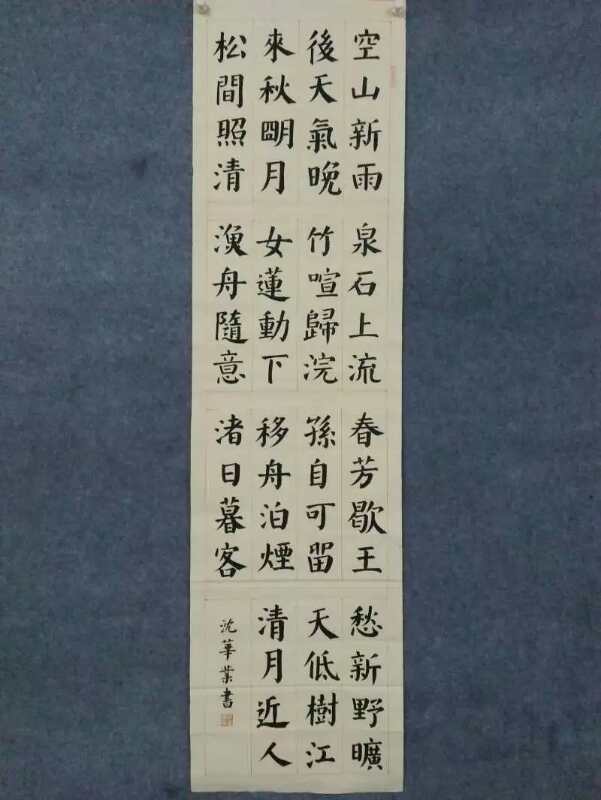 空山新雨
後天氣晚
來秋朙月
松間照清
泉石上流
竹喧歸浣
女蓮動下
漁舟隨意
春芳歇王
孫自可留
移舟泊煙
渚日暮客
愁新野曠
天低樹江
清月近人
沈華葉書